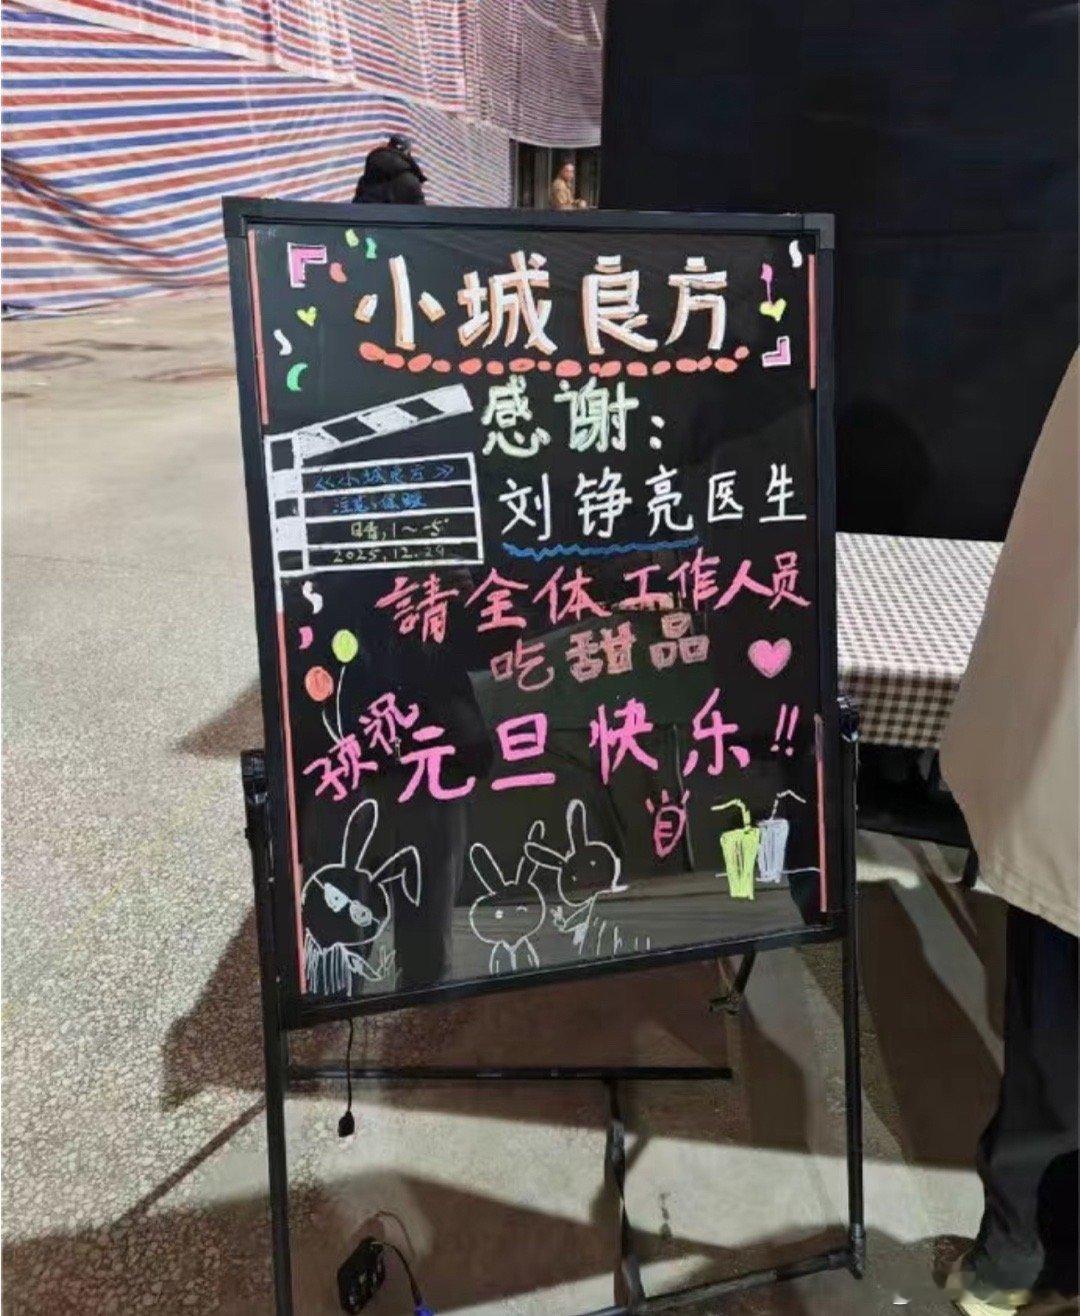 小城良方
感谢：
《小城良方》
注意:保暖
晴，1～-5°
2025.12.29
刘铮亮医生
請全体工作人员
吃甜品
预祝
元旦快乐!!